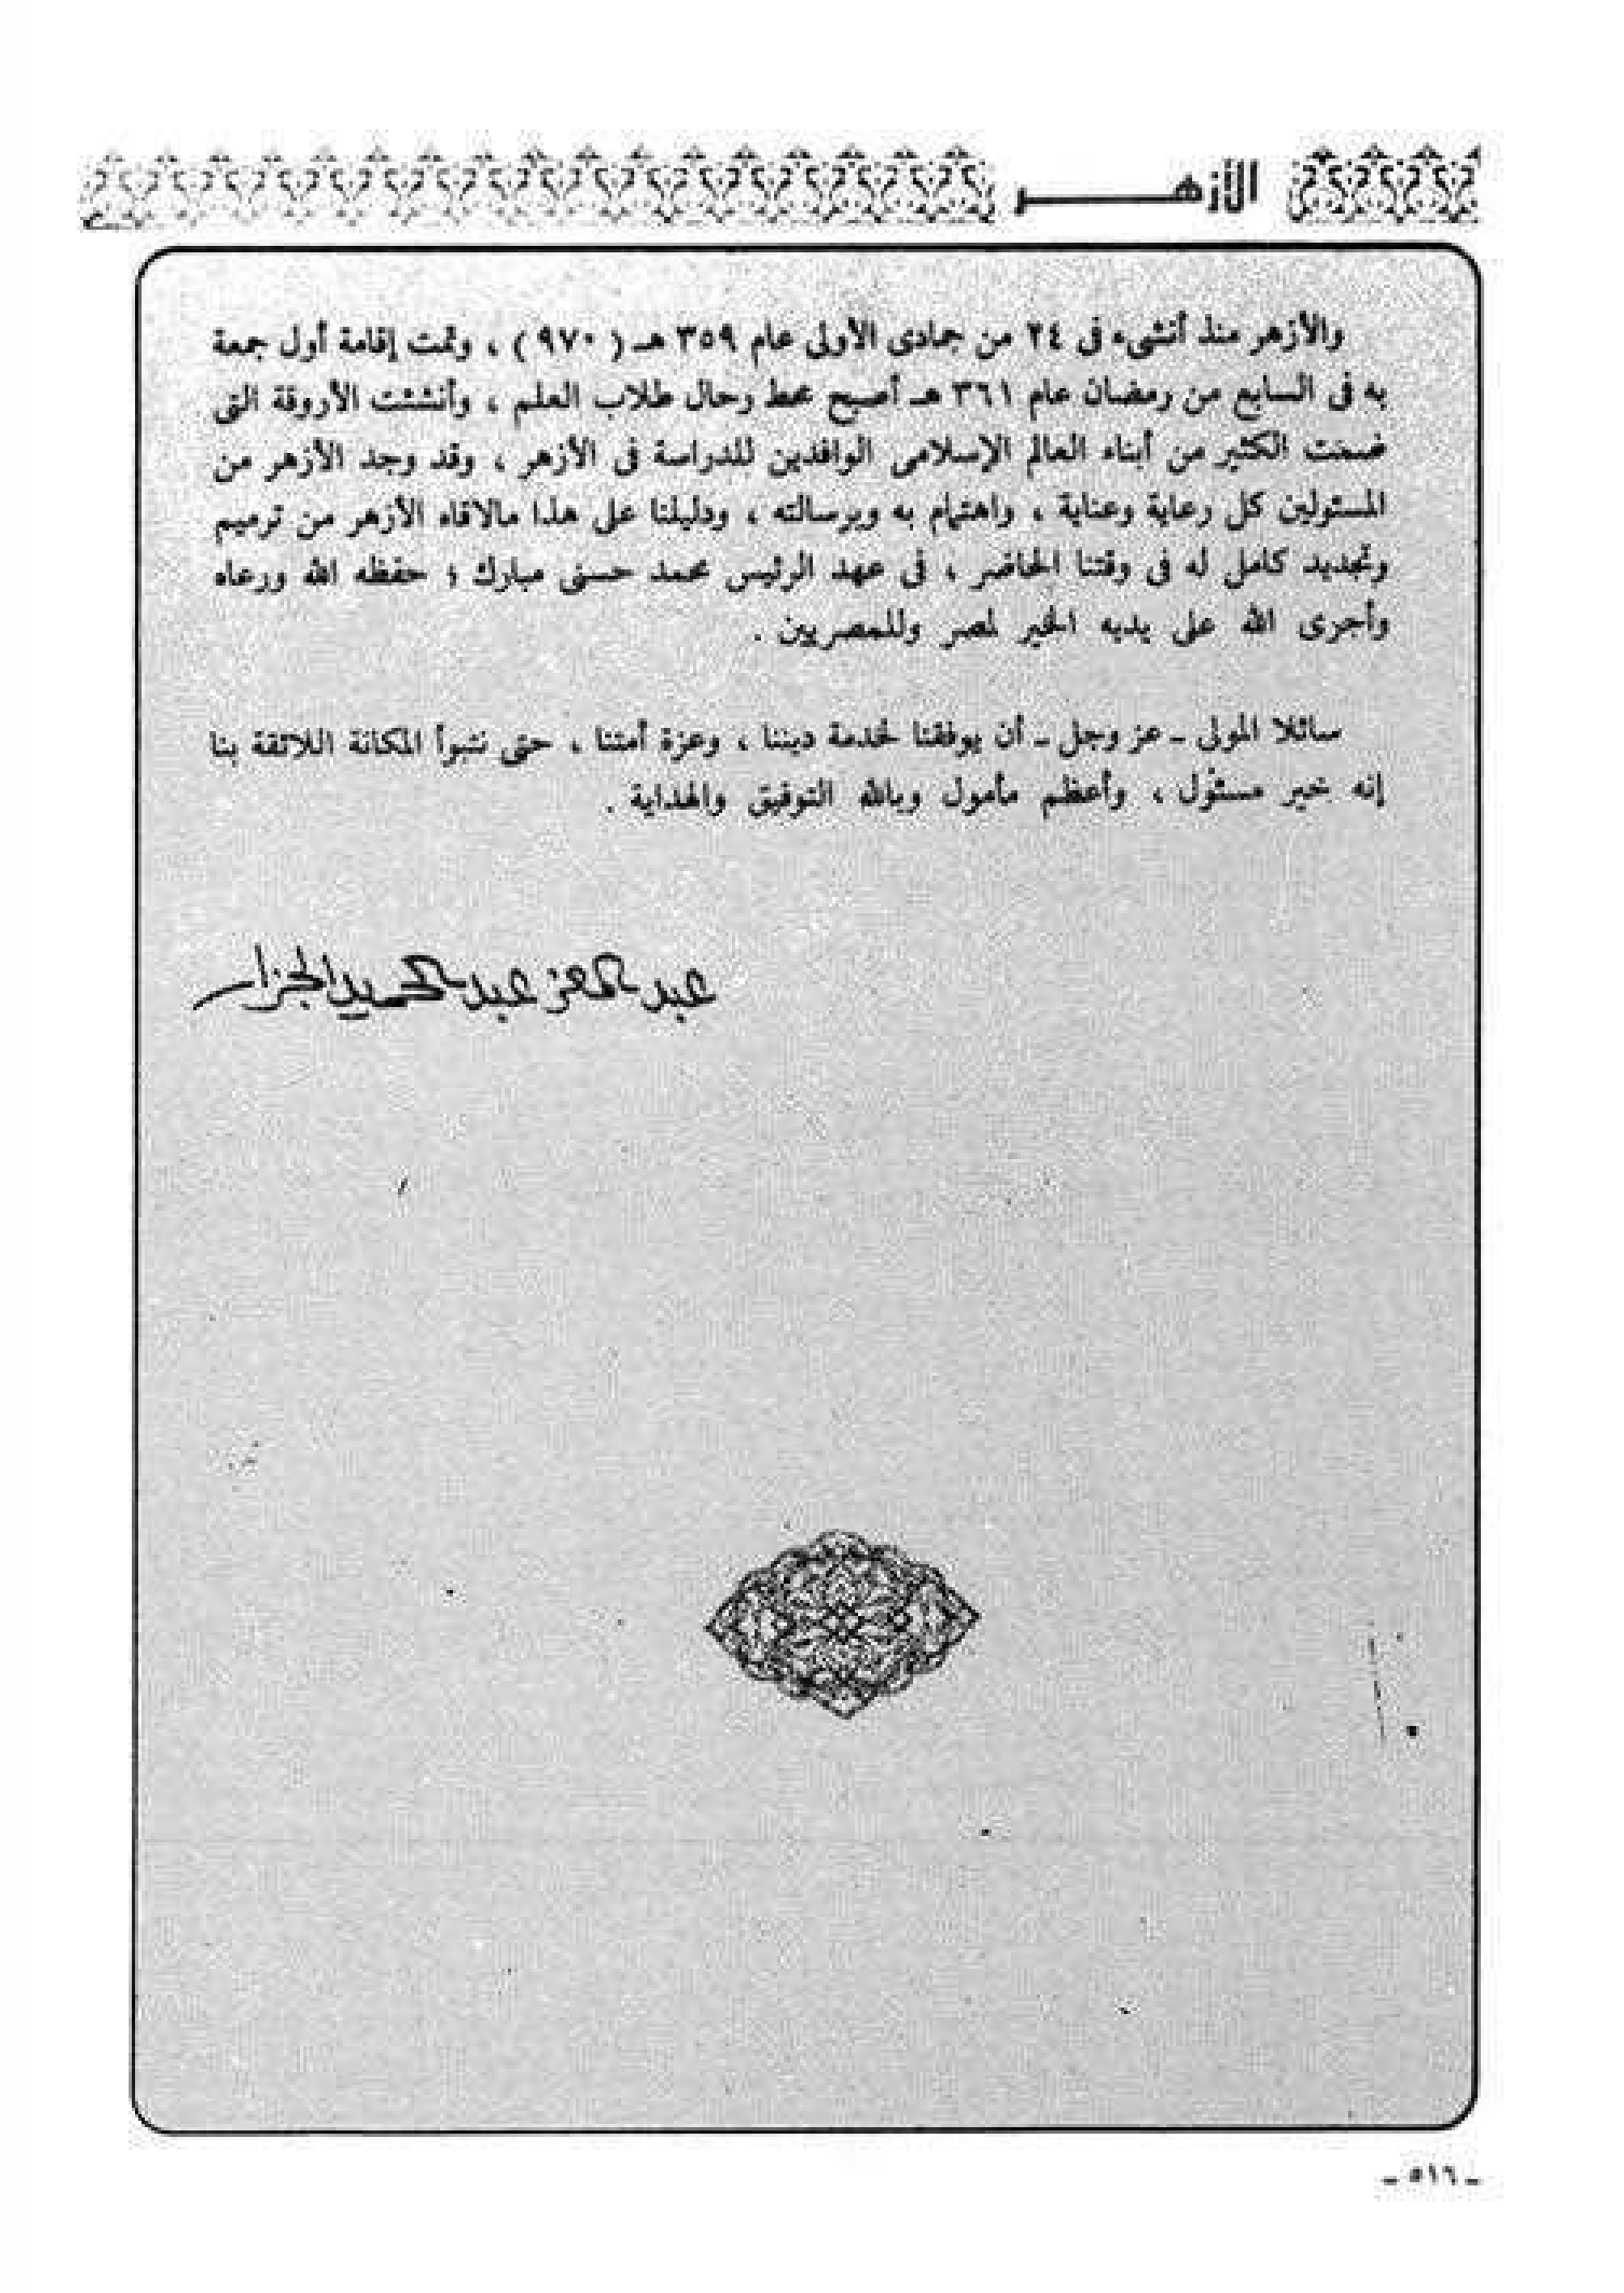 الأزهـــــــر
والأزهر منذ أنشىء فى ٢٤ من جمادى الأولى عام ٣٥٩ هـ ( ٩٧٠ ) ، وتمت إقامة أول جمعة
به فى السابع من رمضان عام ٣٦١ هـ أصبح محط رحال طلاب العلم ، وأنشئت الأروقة التى
ضمت الكثير من أبناء العالم الإسلامى الوافدين للدراسة فى الأزهر ، وقد وجد الأزهر من
المسئولين كل رعاية وعناية ، واهتمام به وبرسالته ، ودليلنا على هذا مالاقاه الأزهر من ترميم
وتجديد كامل له فى وقتنا الحاضر ، فى عهد الرئيس محمد حسنى مبارك ؛ حفظه الله ورعاه
وأجرى الله على يديه الخير لمصر وللمصريين .
سائلا المولى ـ عز وجل ـ أن يوفقنا لخدمة ديننا ، وعزة أمتنا ، حتى نتبوأ المكانة اللائقة بنا
إنه خير مسئول ، وأعظم مأمول وبالله التوفيق والهداية .
عبد المعز عبد الحميد الجزار
ـ ٥١٦ ـ